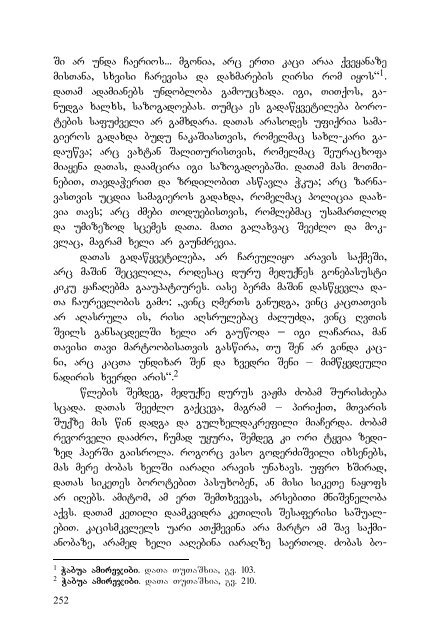 ში არ უნდა ჩაერიოს... მგონია, არც ერთი კაცი არაა ქვეყანაზე
მისთანა, სხვისი ჩარევისა და დახმარების ღირსი რომ იყოს“1.
დათამ ადამიანებს უნდობლობა გამოუცხადა. იგი, თითქოს, გა-
ნუდგა ხალხს, საზოგადოებას. თუმცა ეს გადაწყვეტილება ბორო-
ტების საფუძველი არ გამხდარა. დათას არასოდეს უფიქრია სამა-
გიეროს გადახდა ბუდუ ნაკაშიასთვის, რომელმაც სახლ-კარი გა-
დაუწვა; არც ვახტან შალითურისთვის, რომელმაც შეურაცხოფა
მიაყენა დათას, დაამცირა იგი საზოგადოებაში. დათამ მას მოთმი-
ნებით, თავდაჭერით და ზრდილობით ასწავლა ჭკუა; არც ზარნა-
ვასთვის უცდია სამაგიეროს გადახდა, რომელმაც პოლიცია დაახ-
ვია თავს; არც ძმები თოდუებისთვის, რომლებმაც უსამართლოდ
და უმიზეზოდ სცემეს დათა. მათი გალახვაც შეეძლო და მოკ-
ვლაც, მაგრამ ხელი არ გაუნძრევია.
დათას გადაწყვეტილება, არ ჩარეულიყო არავის საქმეში,
არც მაშინ შეცვლილა, როდესაც დურუ მედუქნეს გონებასუსტი
კიკუ ყაჩაღებმა გააუპატიურეს. იასე ბერმა მაშინ დასწყევლა და-
თა ჩაურევლობის გამო: „ვინც ღმერთს განუდგა, ვინც კაცთათვის
არ აღასრულა ის, რისი აღსრულებაც ძალუძდა, ვინც ღვთის
შვილს განსაცდელში ხელი არ გაუწოდა – იგი ლაჩარია, მან
თავისი თავი მარტოობისათვის გასწირა, თუ შენ არ გინდა კაც-
ნი, არც კაცთა უნდიხარ შენ და ხვედრი შენი – მიმწყვდეული
ნადირის ხვერდი არის“.2
წლების შემდეგ, მედუქნე დურუს ვაჟმა ძობამ შურისძიება
სცადა. დათას შეეძლო გაქცევა, მაგრამ – პირიქით, მთვარის
შუქზე მის წინ დადგა და გულხელდაკრეფილი მიაჩერდა. ძობამ
რევორველი დააძრო, ჩუმად უყურა, შემდეგ კი ორი ტყვია ზედი-
ზედ ჰაერში გაისროლა. როგორც ვასო გოდერძიშვილი იხსენებს,
მას მერე ძობას ხელში იარაღი არავის უნახავს. უფრო ხშირად,
დათას სიკეთეს ბოროტებით პასუხობენ, ან მისი სიკეთე ნაყოფს
არ იღებს. ამიტომ, ამ ერთ შემთხვევას, არსებითი მნიშვნელობა
აქვს. დათამ კეთილი დაამკვიდრა კეთილის შესაფერისი საშუალ-
ებით. კაცისმკვლელს უარი ათქმევინა არა მარტო ამ შავ საქმი-
ანობაზე, არამედ ხელი ააღებინა იარაღზე საერთოდ. ძობას ბო-
1 ჭაბუა ამირეჯიბი. დათა თუთაშხია, გვ. 103.
2 ჭაბუა ამირეჯიბი. დათა თუთაშხია, გვ. 210.
252